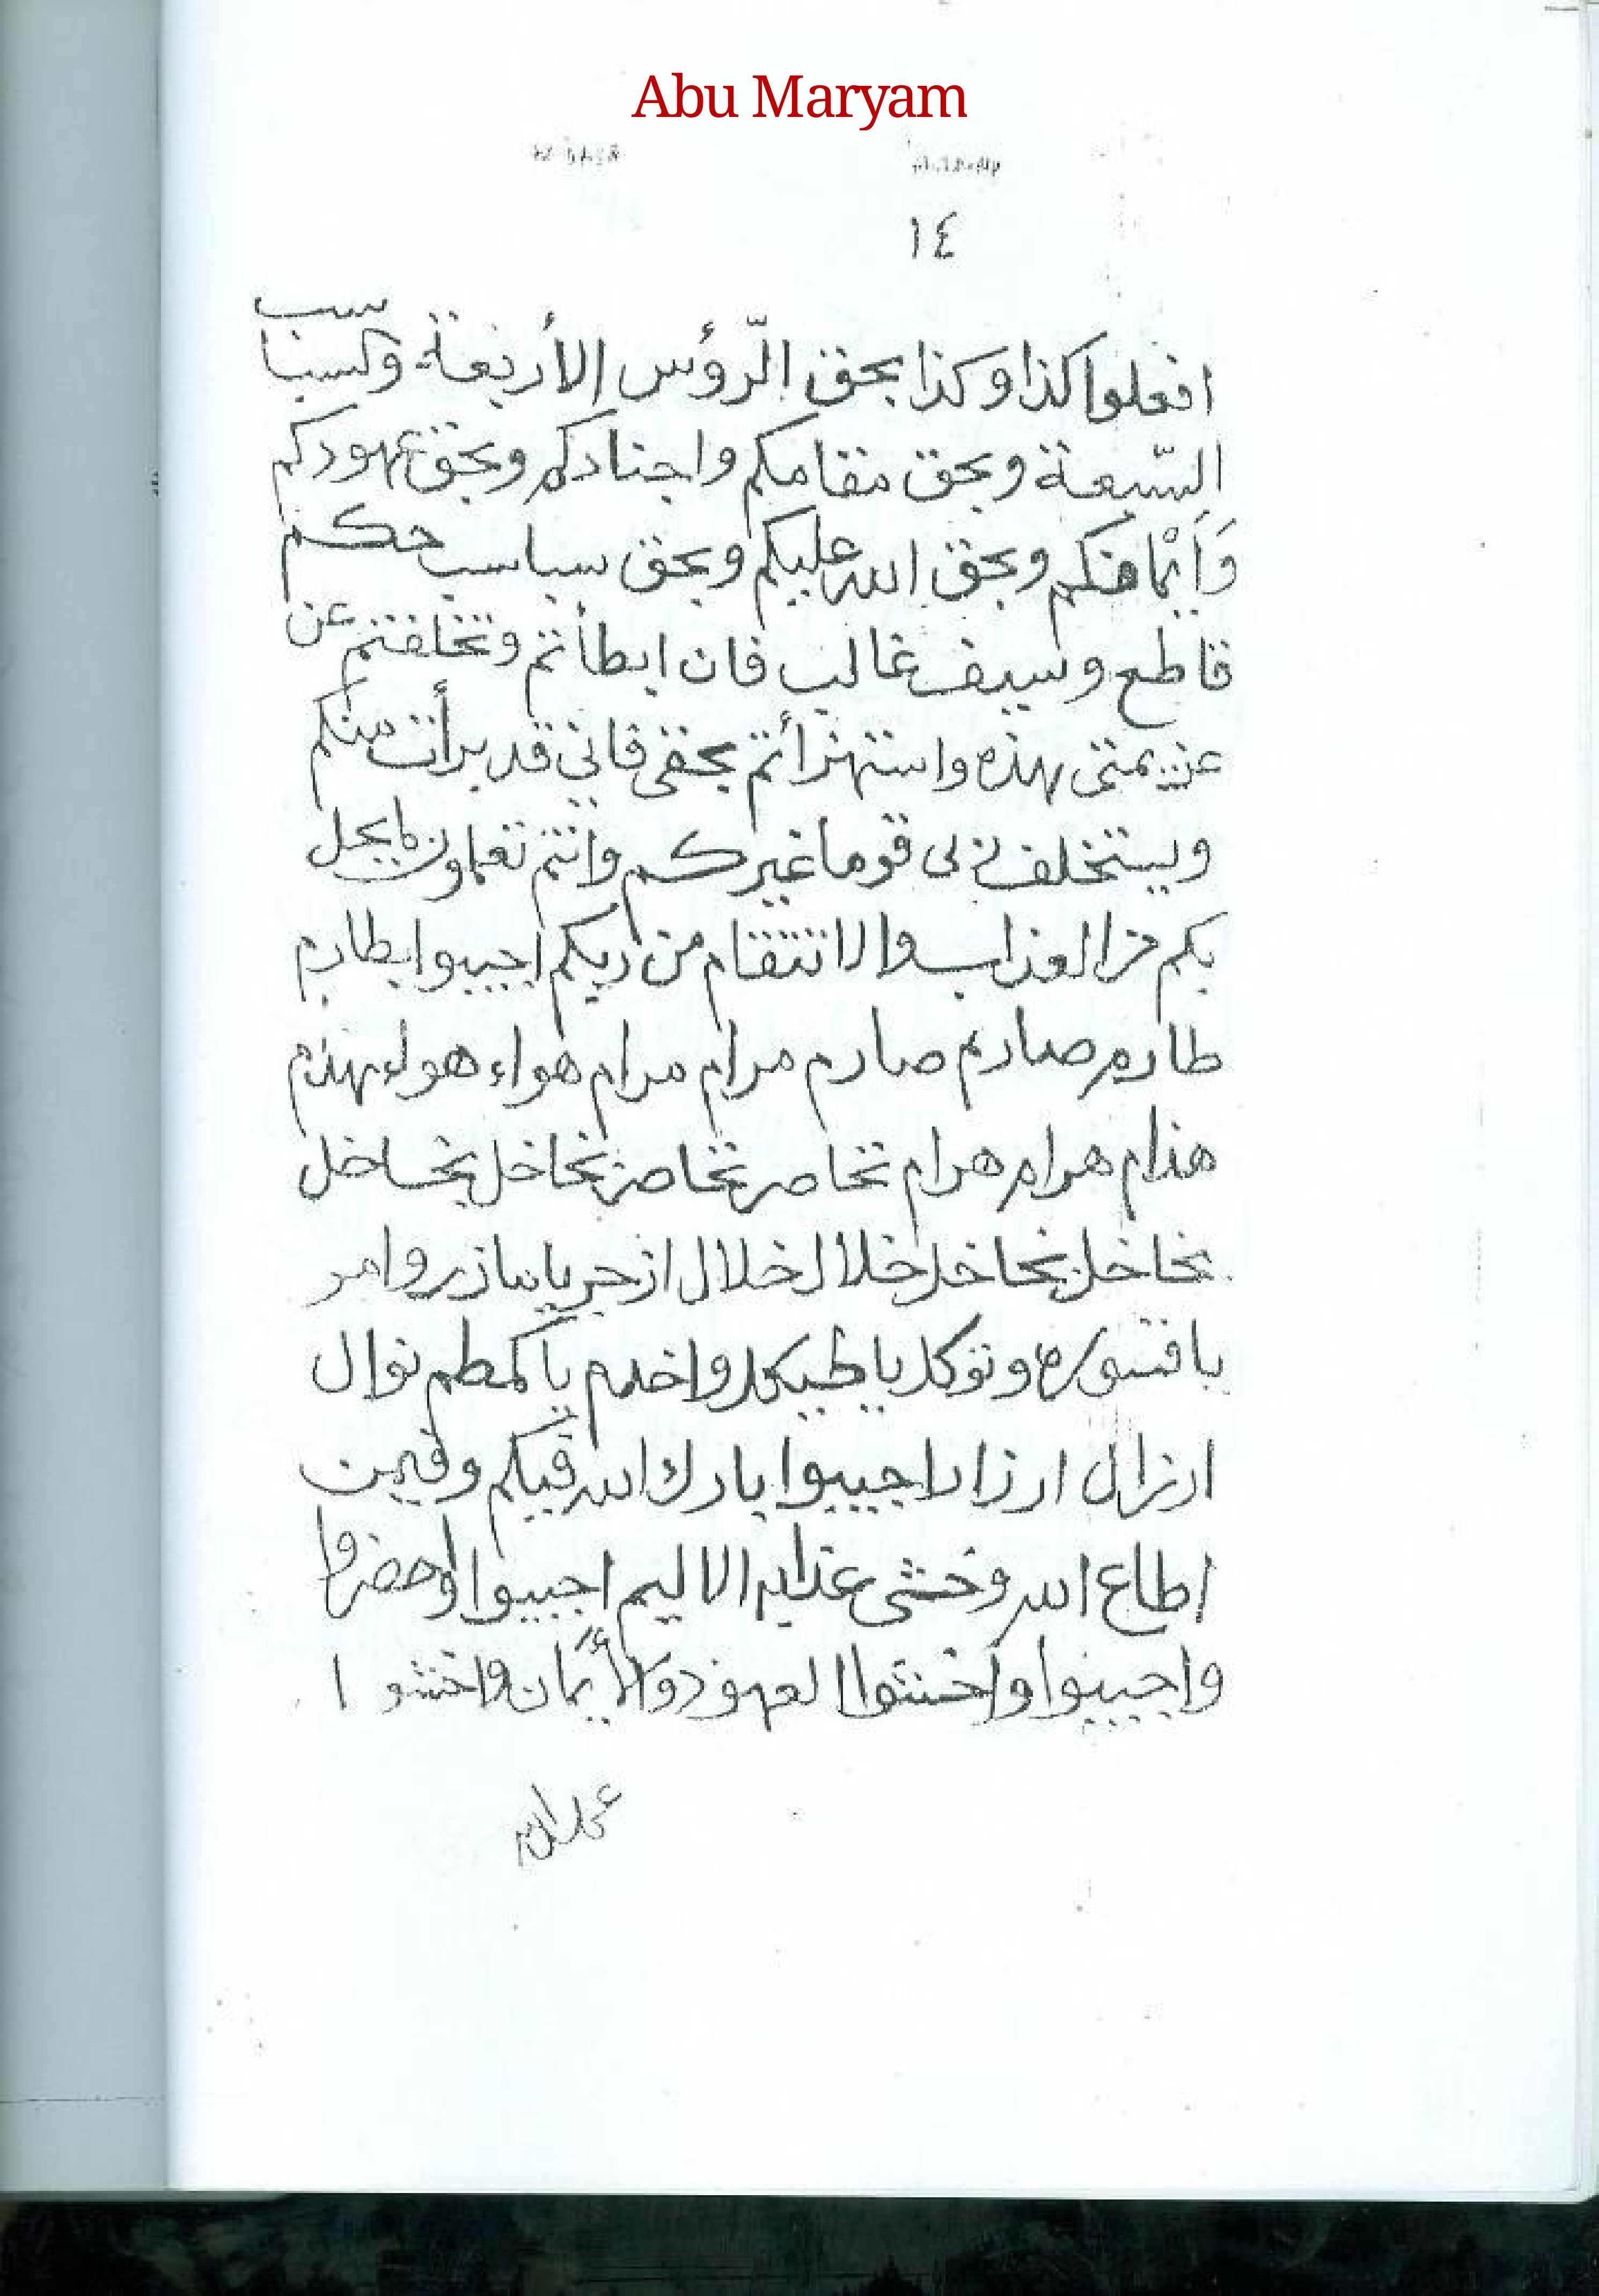 Abu Maryam
١٤
افعلوا كذا وكذا بحق الّرؤس الأربعة وكسبا سب
السّبعة وبحق مقامكم واجنادكم وبحق عهودكم
وَأَيْمَانكم وبحق الله عليكم وبحق سباسب حكم
قاطع وسيف غالب فان ابطأتم وتخلفتم عن
عزيمتى بهذه واستهزأتم بحقى فانى قد برأت منكم
ويستخلف لى قوما غيركم وانتم تعلمون ما يحل
بكم من العذاب والانتقام من ربكم اجيبوا بطارم
طارم صارم صارم مرام مرام هواء هواء بهذم
هذام هرام هرام تخاصر تخاصر بخاخل بخاخل
بخاخل بخاخل خلال خلال ازجر يا مازر وامر
يا قسورة وتوكل يا طيكل واخدم يا كمطم نوال
ارزال ارزال اجيبوا بارك الله فيكم وفيمن
اطاع الله وخشى عذابه الاليم اجيبوا واحضروا
واجيبوا واخشوا العهود والأيمان واخشوا